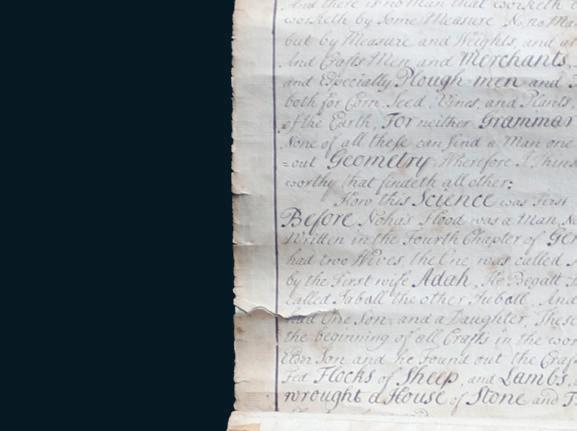 And there is no man that worketh
worketh by Some Measure, No, no Ma
but by Measure and Weights, and
And Crafts Men and Merchants,
and Especially Plough men and
both for Corn, Seed, Vines, and Plants,
of the Earth, For neither Grammar
None of all these can find a Man one
=out Geometry. Wherefore I Think
worthy that findeth all other:
How this Science was First
Before Noha's Flood was a Man, Na
Written in the Fourth Chapter of Gen
had two Wives the One was called A
by the First wife Adah, He Begatt
called Jaball the other Juball, And
had One Son, and a Daughter, These
the beginning of all Crafts in the wor
Elder Son and he Found out the Craf
Fed Flocks of Sheep, and Lambs,
wrought a House of Stone and T